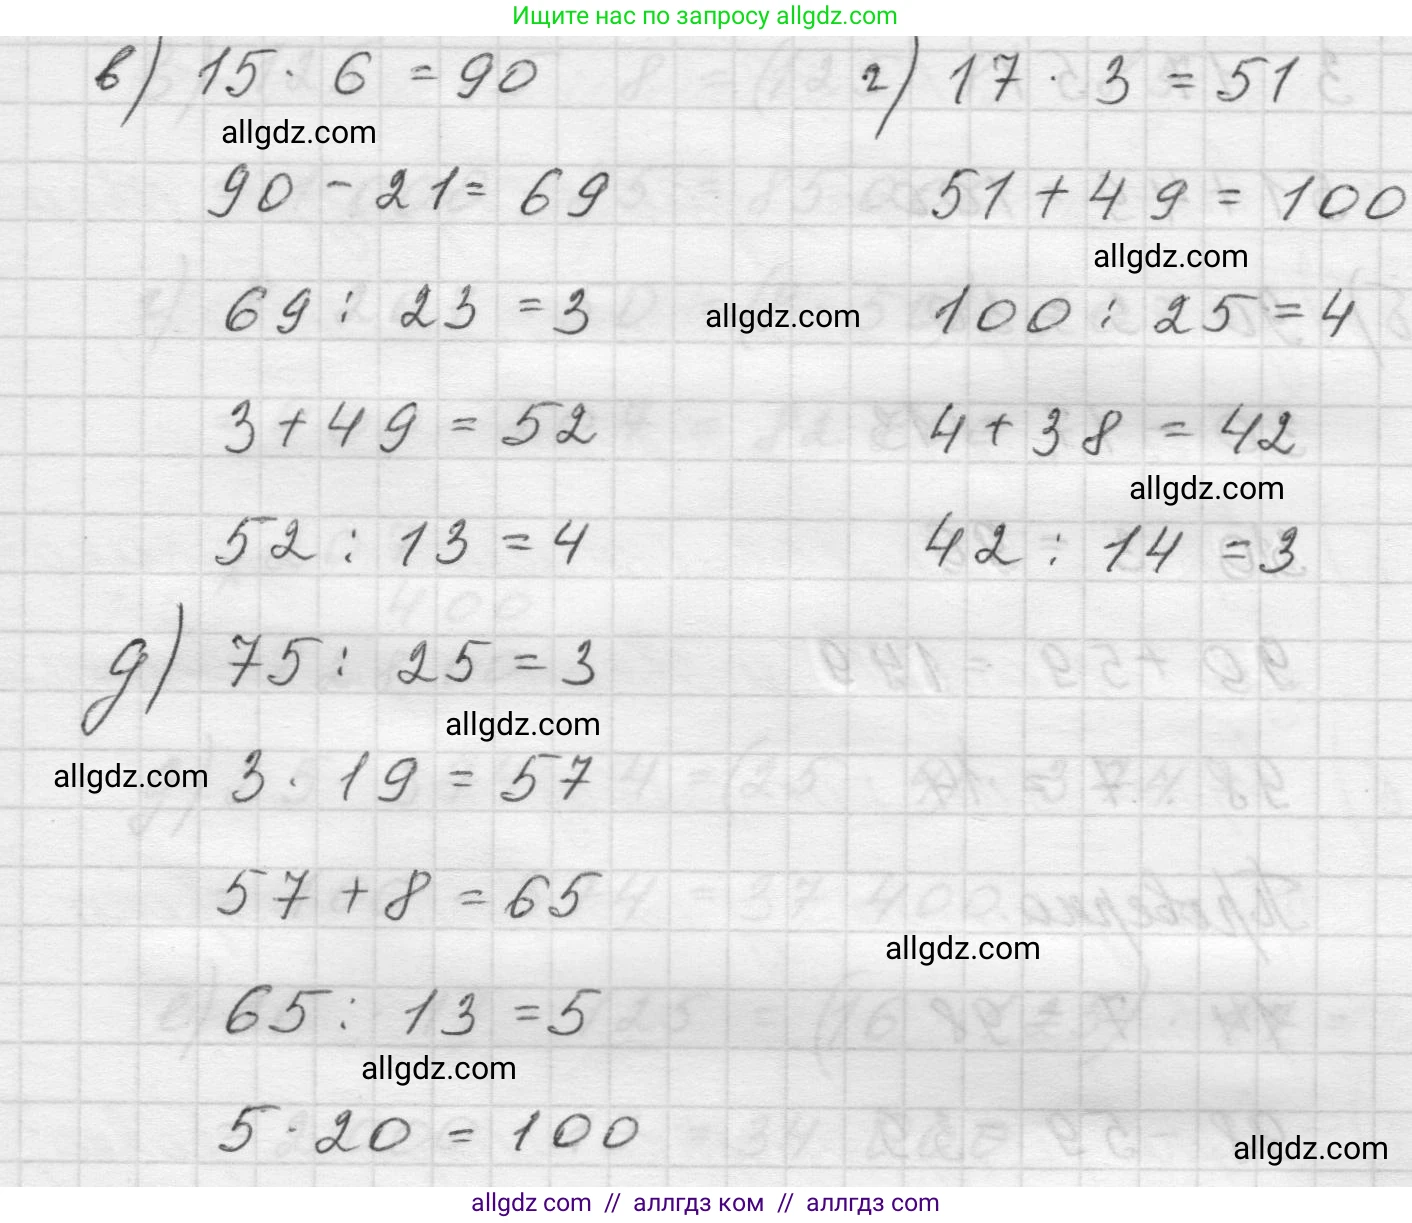 Ищите нас по запросу allgdz.com
в) 15 · 6 = 90
allgdz.com
90 - 21 = 69
69 : 23 = 3
allgdz.com
3 + 49 = 52
52 : 13 = 4
г) 17 · 3 = 51
51 + 49 = 100
allgdz.com
100 : 25 = 4
4 + 38 = 42
allgdz.com
42 : 14 = 3
д) 75 : 25 = 3
allgdz.com
allgdz.com
3 · 19 = 57
57 + 8 = 65
allgdz.com
65 : 13 = 5
allgdz.com
5 · 20 = 100
allgdz.com
allgdz com // аллгдз ком // аллгдз com